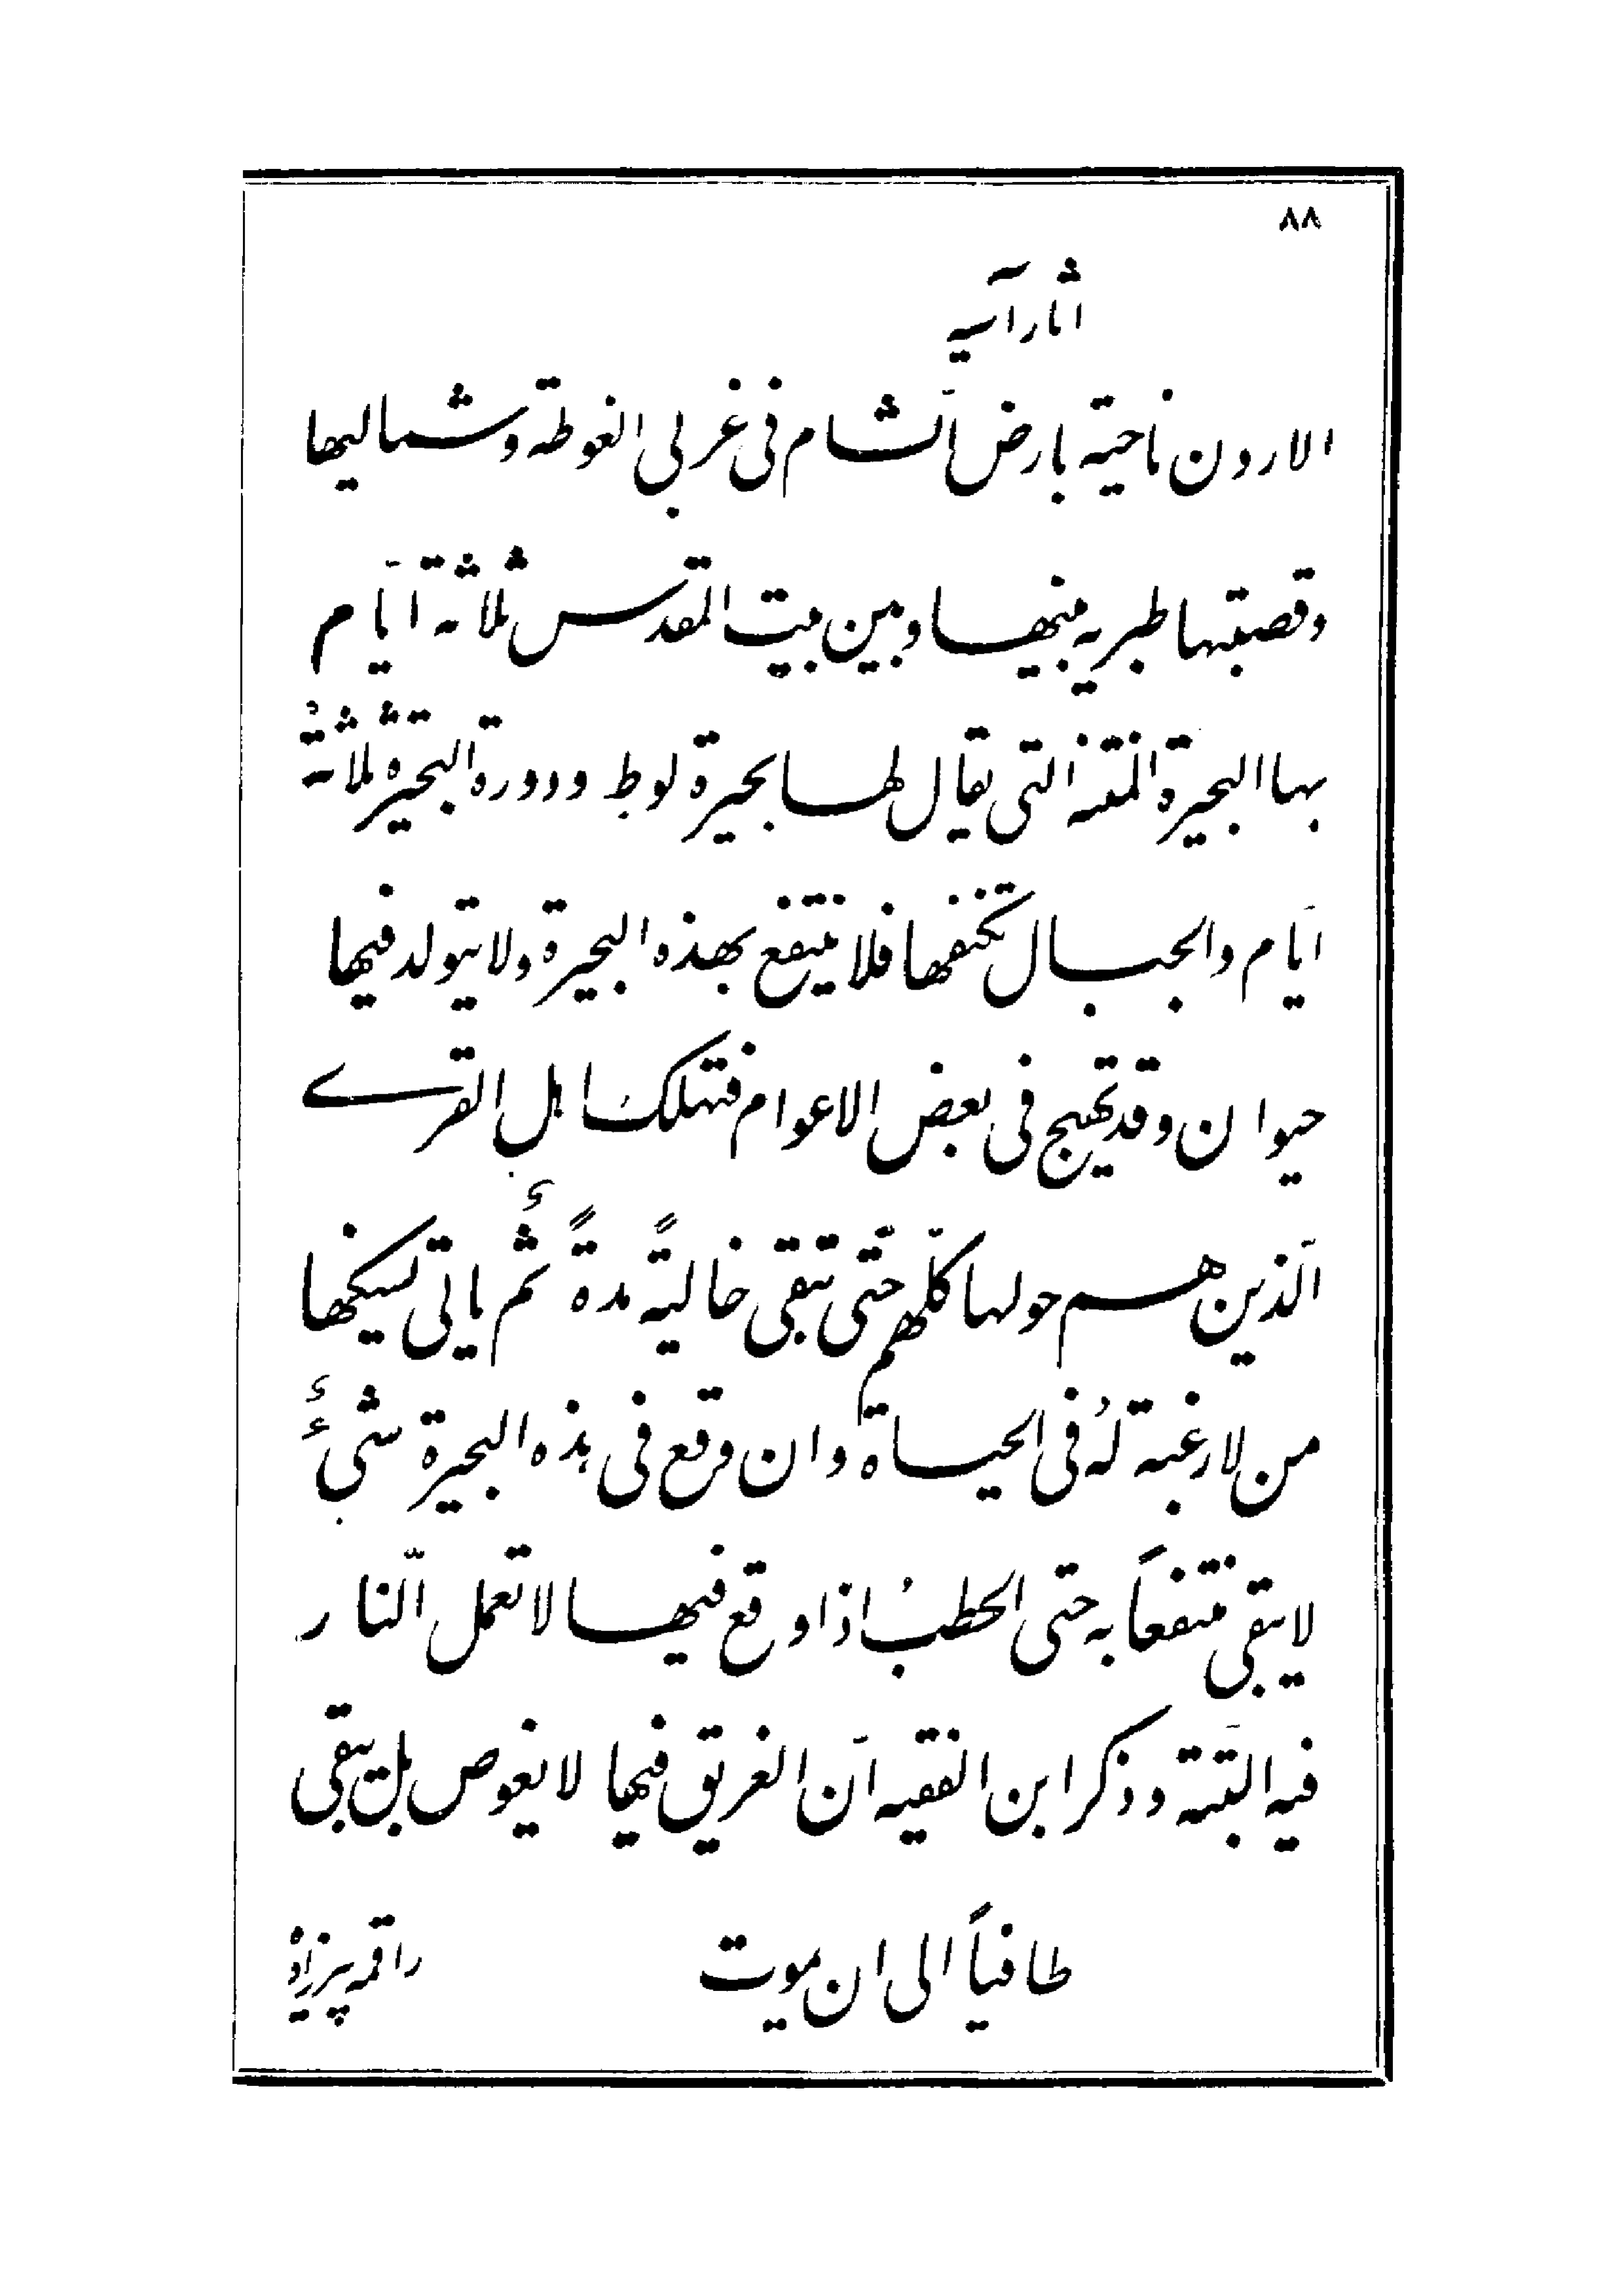 ٨٨
اثار آسیه
الاردن ناحیة بارض الشام فی غربی الغوطة و شمالیها
وقصبتها طبریه بینها وبین بیت المقدس ثلاثة ایّام
بها البحیرة المنتنة التی یقال لها بحیرة لوط ودورة البحیرة ثلاثةُ
ایّام والجبال تکنفها فلا ینتفع بهذه البحیرة ولا یتولد فیها
حیوان وقد تهیج فی بعض الاعوام فتهلک اهل القرے
الّذین هم حولها کلّهم حتّی تبقی خالیةً مدةً ثُم یاتی لیسکنها
من لا رغبة لهُ فی الحیاة وان وقع فی هذه البحیرة شیءٌ
لا یبقی منتفعاً به حتی الحطبُ اذا وقع فیها لا تعمل النّار
فیه البتّة وذکر ابن الفقیه انّ الغریق فیها لا یغوص بل یبقی
طافیاً الی ان یموت
راقمه پیرزاده